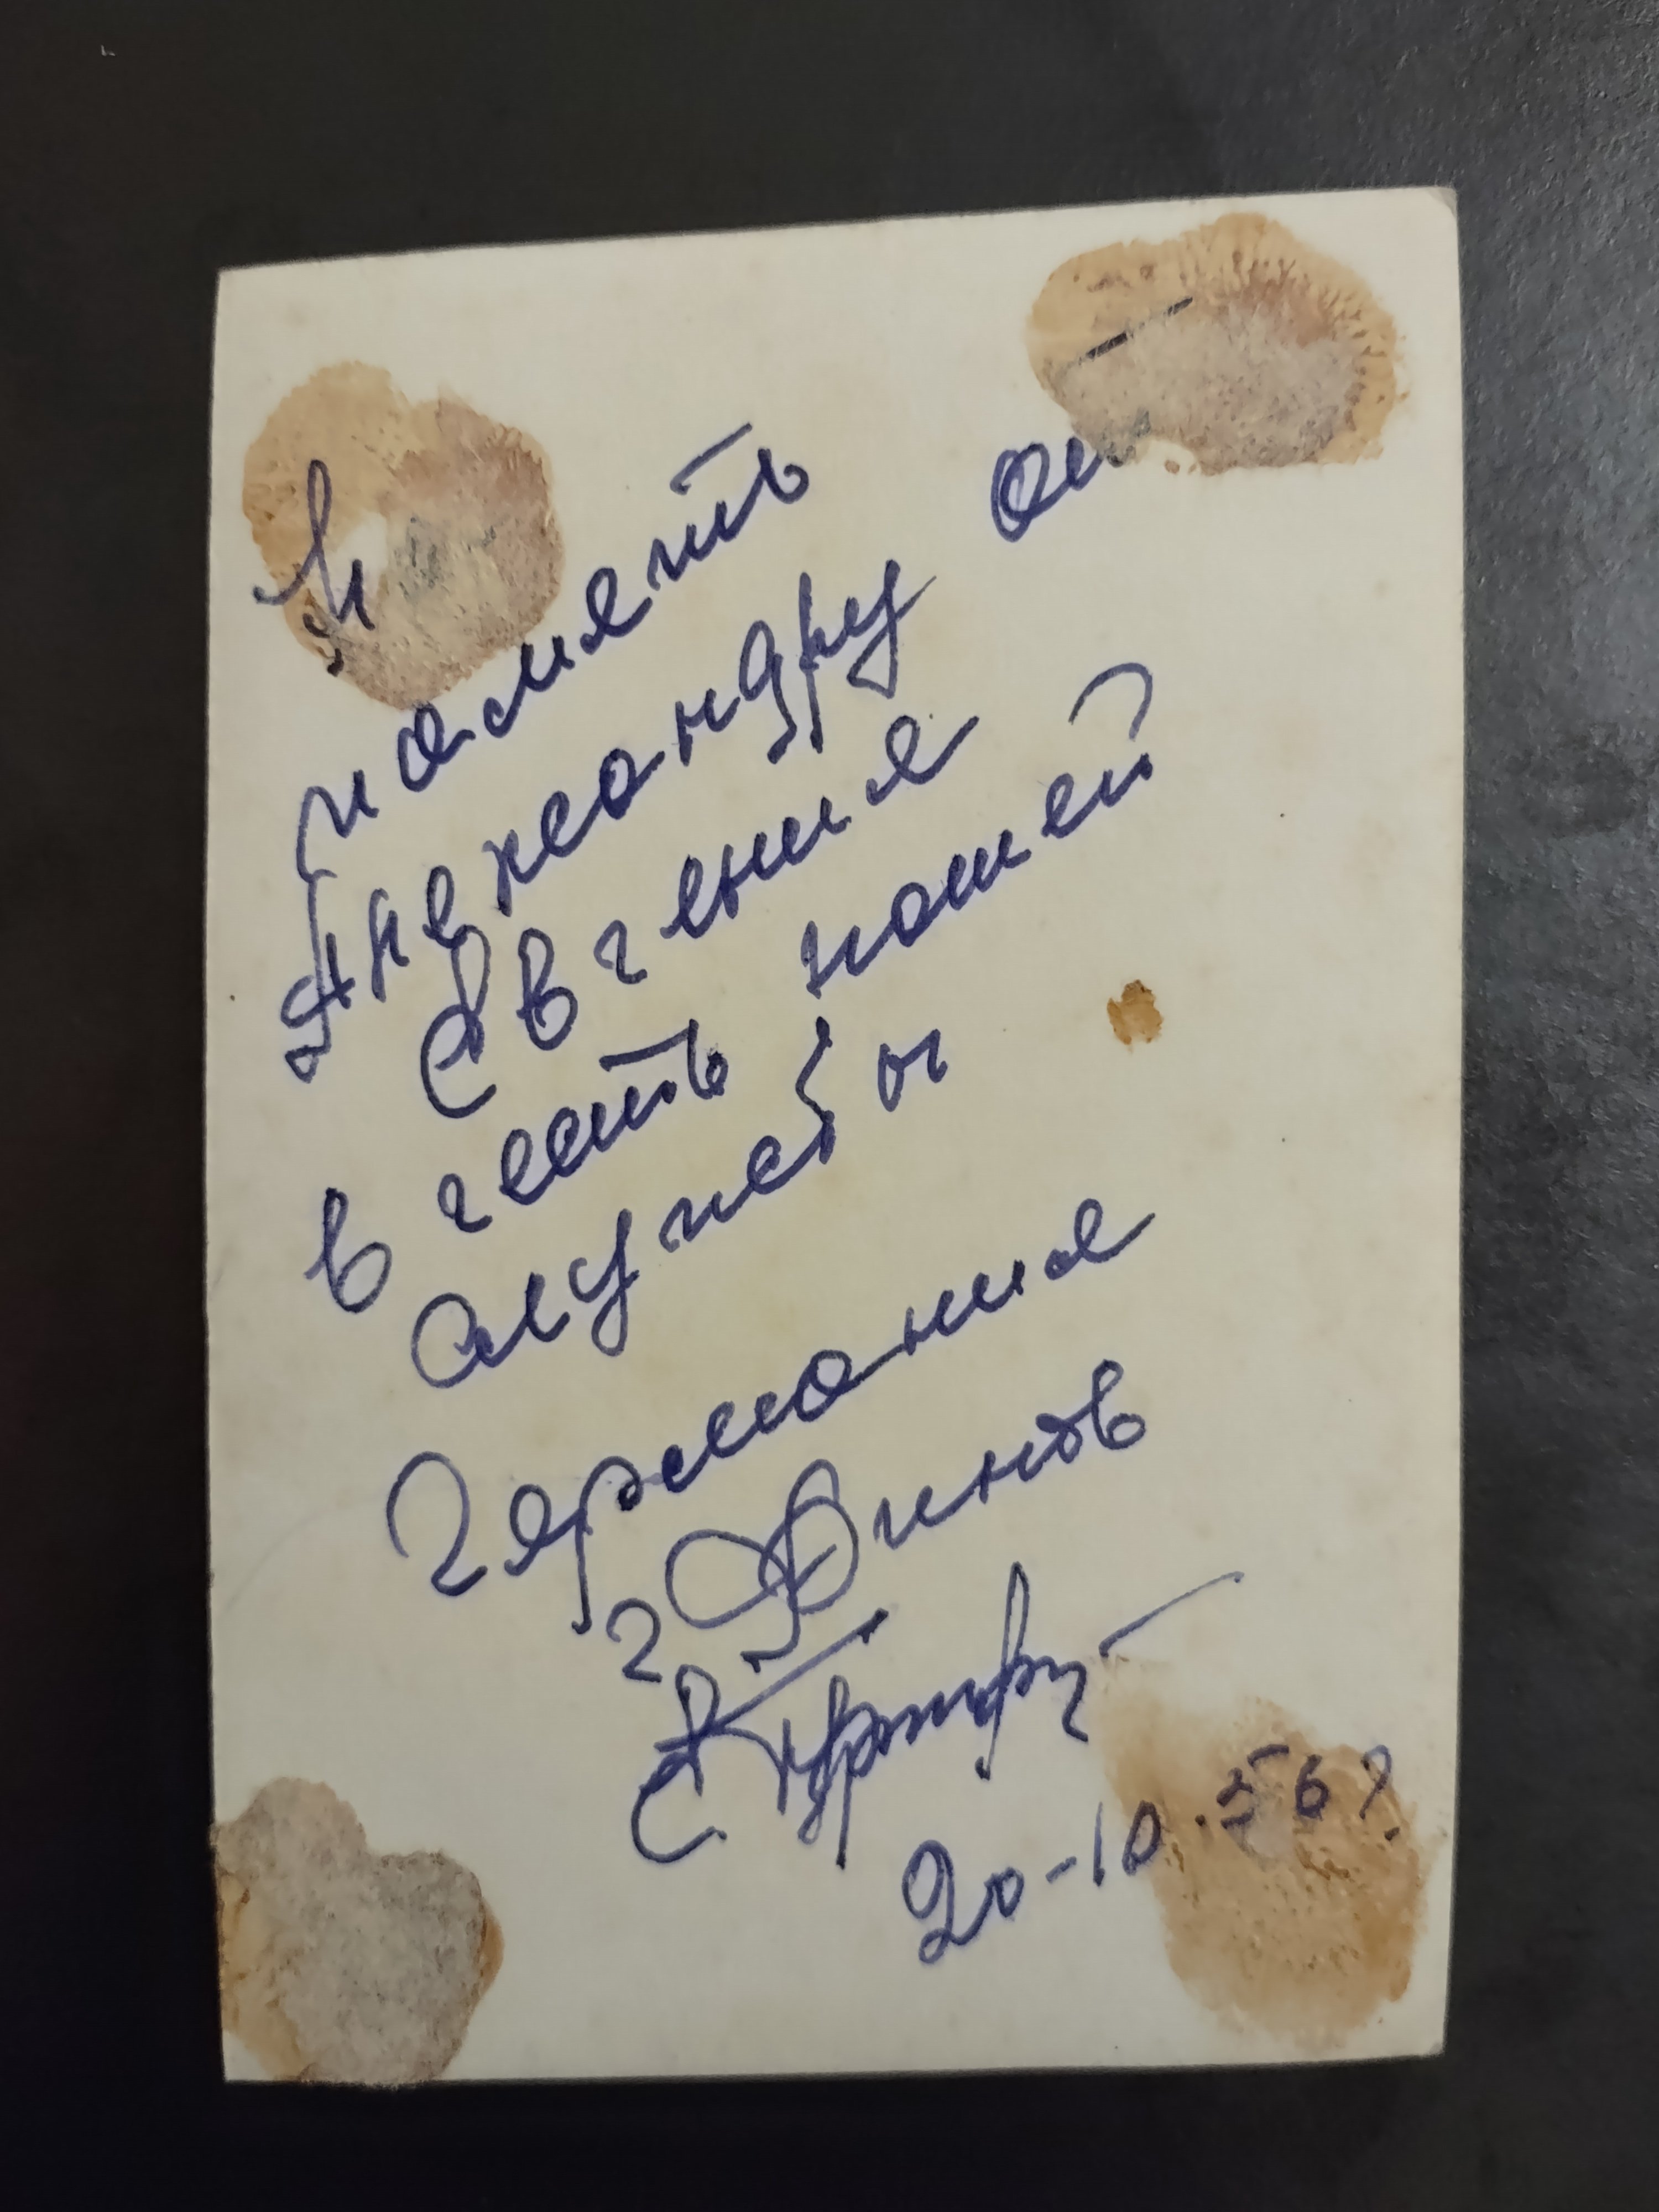 память
Александру от
Евгения
в честь нашей
службы
Германия
г Финов
20-10.56г.